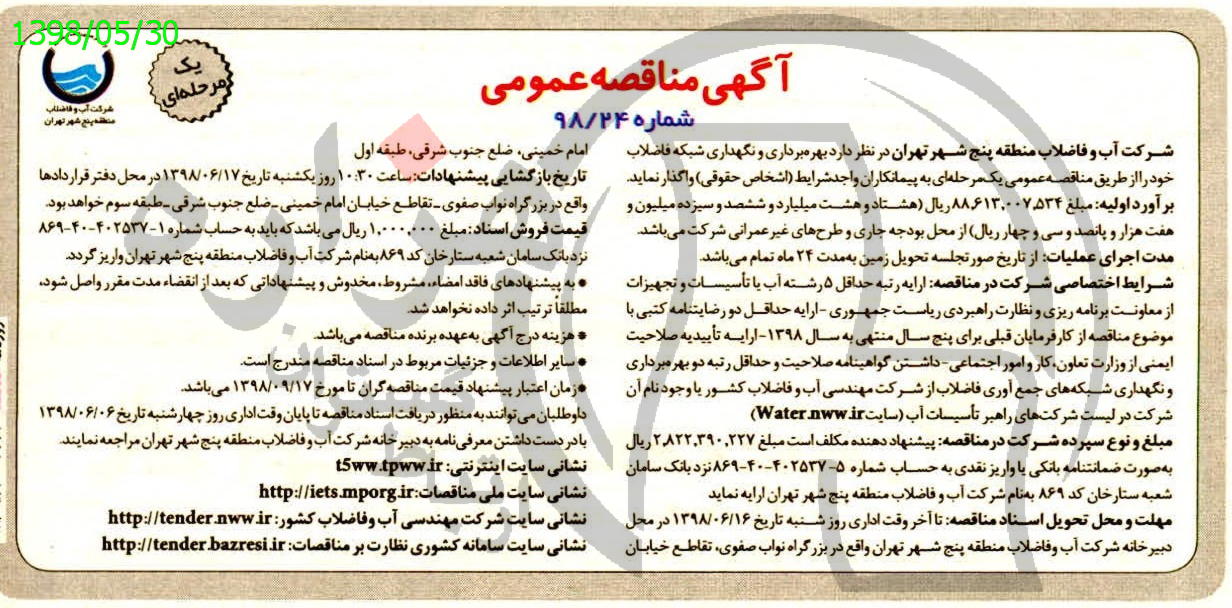 1398/05/30
شرکت آب و فاضلاب
منطقه پنج شهر تهران
یک
مرحله‌ای
آگهی مناقصه عمومی
شماره ۹۸/۲۴
شرکت آب و فاضلاب منطقه پنج شهر تهران در نظر دارد بهره‌برداری و نگهداری شبکه فاضلاب
خود را از طریق مناقصه عمومی یک مرحله‌ای به پیمانکاران واجد شرایط (اشخاص حقوقی) واگذار نماید.
برآورد اولیه: مبلغ ۸۸,۶۱۳,۰۰۷,۵۳۴ ریال (هشتاد و هشت میلیارد و ششصد و سیزده میلیون و
هفت هزار و پانصد و سی و چهار ریال) از محل بودجه جاری و طرح‌های غیر عمرانی شرکت می‌باشد.
مدت اجرای عملیات: از تاریخ صورتجلسه تحویل زمین به‌مدت ۲۴ ماه تمام می‌باشد.
شرایط اختصاصی شرکت در مناقصه: ارایه رتبه حداقل ۵ رشته آب یا تأسیسات و تجهیزات
از معاونت برنامه ریزی و نظارت راهبردی ریاست جمهوری -ارایه حداقل دو رضایتنامه کتبی با
موضوع مناقصه از کارفرمایان قبلی برای پنج سال منتهی به سال ۱۳۹۸-ارایه تأییدیه صلاحیت
ایمنی از وزارت تعاون، کار و امور اجتماعی-داشتن گواهینامه صلاحیت و حداقل رتبه دو بهره‌برداری
و نگهداری شبکه‌های جمع آوری فاضلاب از شرکت مهندسی آب و فاضلاب کشور یا وجود نام آن
شرکت در لیست شرکت‌های راهبر تأسیسات آب (سایت Water.nww.ir)
مبلغ و نوع سپرده شرکت در مناقصه: پیشنهاد دهنده مکلف است مبلغ ۲,۸۲۲,۳۹۰,۲۲۷ ریال
به‌صورت ضمانتنامه بانکی یا واریز نقدی به حساب شماره ۵-۴۰۲۵۳۷-۴۰-۸۶۹ نزد بانک سامان
شعبه ستارخان کد ۸۶۹ به‌نام شرکت آب و فاضلاب منطقه پنج شهر تهران ارایه نماید
مهلت و محل تحویل اسناد مناقصه: تا آخر وقت اداری روز شنبه تاریخ ۱۳۹۸/۰۶/۱۶ در محل
دبیرخانه شرکت آب و فاضلاب منطقه پنج شهر تهران واقع در بزرگراه نواب صفوی، تقاطع خیابان
امام خمینی، ضلع جنوب شرقی، طبقه اول
تاریخ بازگشایی پیشنهادات: ساعت ۱۰:۳۰ روز یکشنبه تاریخ ۱۳۹۸/۰۶/۱۷ در محل دفتر قراردادها
واقع در بزرگراه نواب صفوی -تقاطع خیابان امام خمینی -ضلع جنوب شرقی -طبقه سوم خواهد بود.
قیمت فروش اسناد: مبلغ ۱,۰۰۰,۰۰۰ ریال می‌باشد که باید به حساب شماره ۱-۴۰۲۵۳۷-۴۰-۸۶۹
نزد بانک سامان شعبه ستارخان کد ۸۶۹ به‌نام شرکت آب و فاضلاب منطقه پنج شهر تهران واریز گردد.
* به پیشنهادهای فاقد امضاء، مشروط، مخدوش و پیشنهاداتی که بعد از انقضاء مدت مقرر واصل شود،
مطلقاً ترتیب اثر داده نخواهد شد.
* هزینه درج آگهی به‌عهده برنده مناقصه می‌باشد.
* سایر اطلاعات و جزئیات مربوط در اسناد مناقصه مندرج است.
* زمان اعتبار پیشنهاد قیمت مناقصه گران تا مورخ ۱۳۹۸/۰۹/۱۷ می‌باشد.
داوطلبان می‌توانند به منظور دریافت اسناد مناقصه تا پایان وقت اداری روز چهارشنبه تاریخ ۱۳۹۸/۰۶/۰۶
با در دست داشتن معرفی‌نامه به دبیرخانه شرکت آب و فاضلاب منطقه پنج شهر تهران مراجعه نمایند.
نشانی سایت اینترنتی: t5ww.tpww.ir
نشانی سایت ملی مناقصات: http://iets.mporg.ir
نشانی سایت شرکت مهندسی آب و فاضلاب کشور: http://tender.nww.ir
نشانی سایت سامانه کشوری نظارت بر مناقصات: http://tender.bazresi.ir